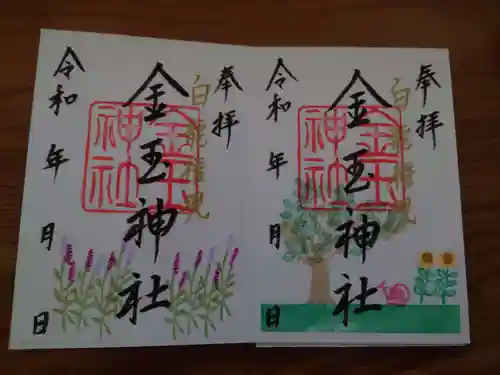 奉拝
白龍権現
金玉神社
金玉神社
令和 年 月 日
奉拝
白龍権現
金玉神社
金玉神社
令和 年 月 日